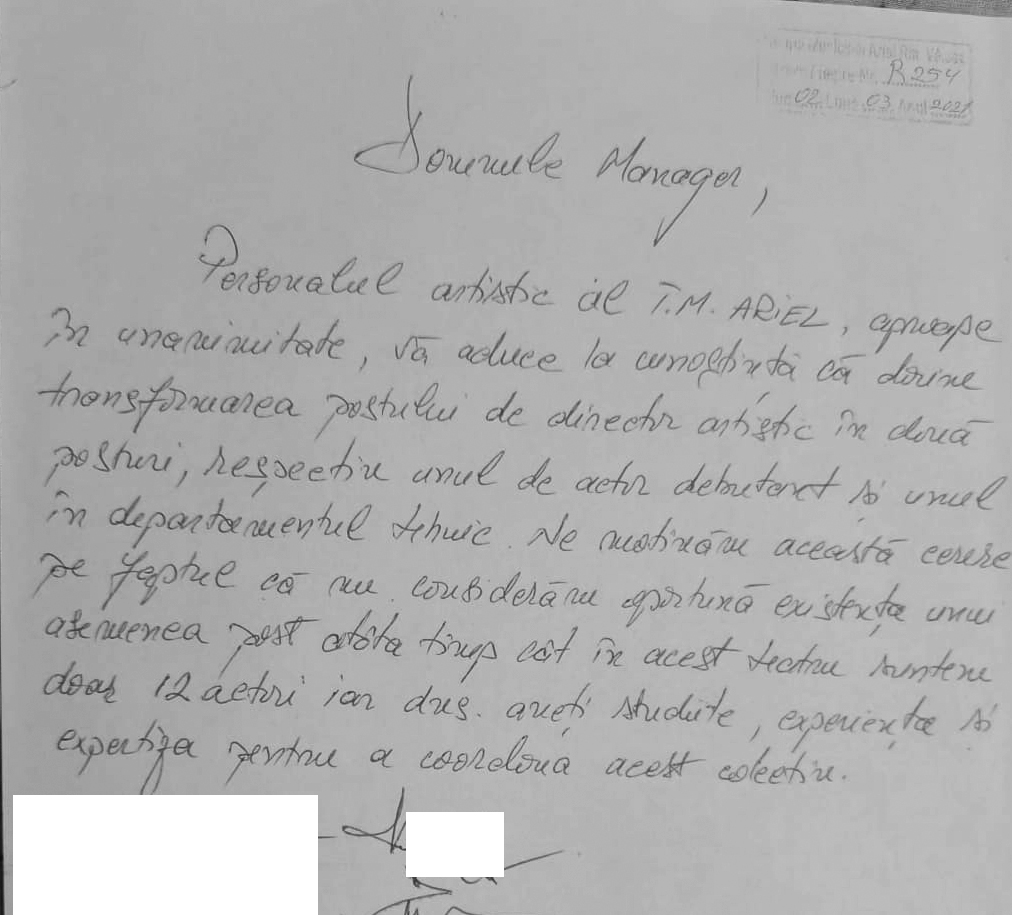 R 254
02 Luna 03 Anul 2021
Domnule Manager,
Personalul artistic al T.M. ARIEL, aproape
în unanimitate, vă aduce la cunoștință că dorim
transformarea postului de director artistic în două
posturi, respectiv unul de actor debutant și unul
în departamentul tehnic. Ne motivăm această cerere
pe faptul că nu considerăm oportună existența unui
asemenea post atâta timp cât în acest teatru suntem
doar 12 actori iar dvs. aveți studiile, experiența și
expertiza pentru a coordona acest colectiv.